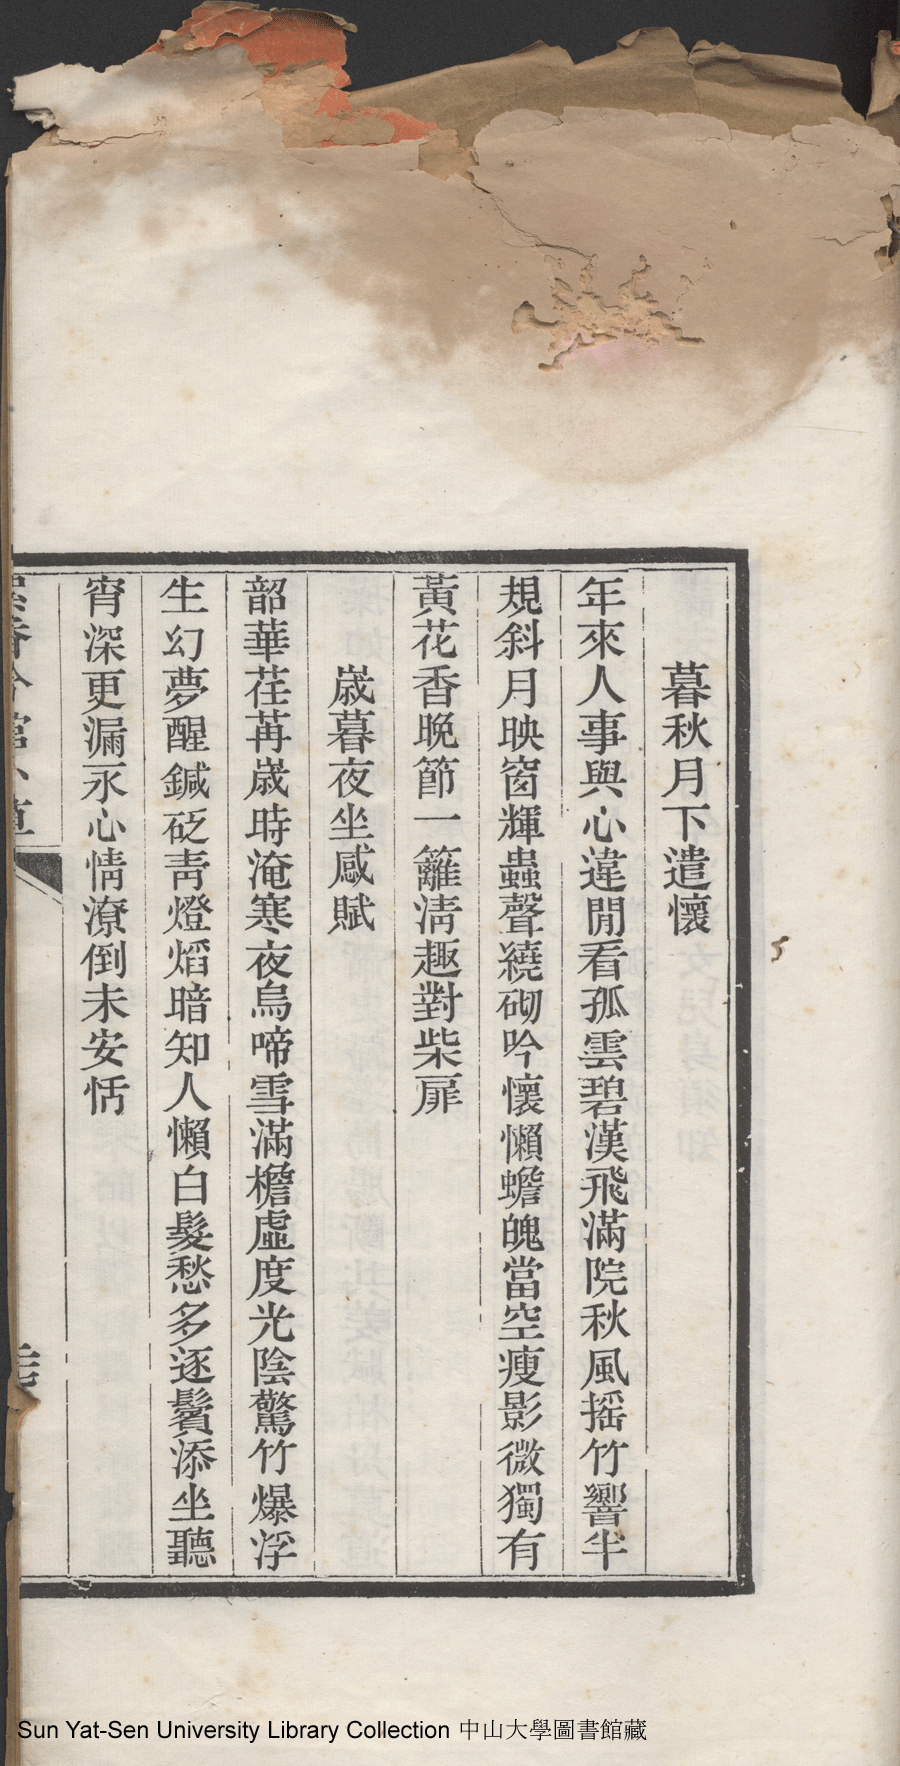 暮秋月下遣懷
年來人事與心違閒看孤雲碧漢飛滿院秋風搖竹響半
規斜月映窗輝蟲聲繞砌吟懷懶蟾魄當空瘦影微獨有
黃花香晚節一籬淸趣對柴扉
歲暮夜坐感賦
韶華荏苒歲時淹寒夜烏啼雪滿檐虛度光陰驚竹爆浮
生幻夢醒鍼砭靑燈熖暗知人懶白髮愁多逐鬢添坐聽
宵深更漏永心情潦倒未安恬
香吟館小草
Sun Yat-Sen University Library Collection 中山大學圖書館藏